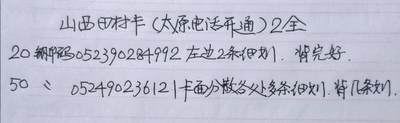 山西田村卡（太原电话开通）2全
20 编码052390284992 左边2条细划.背完好.
50 〃 052490236121卡面分散各处多条细划.背几条划.